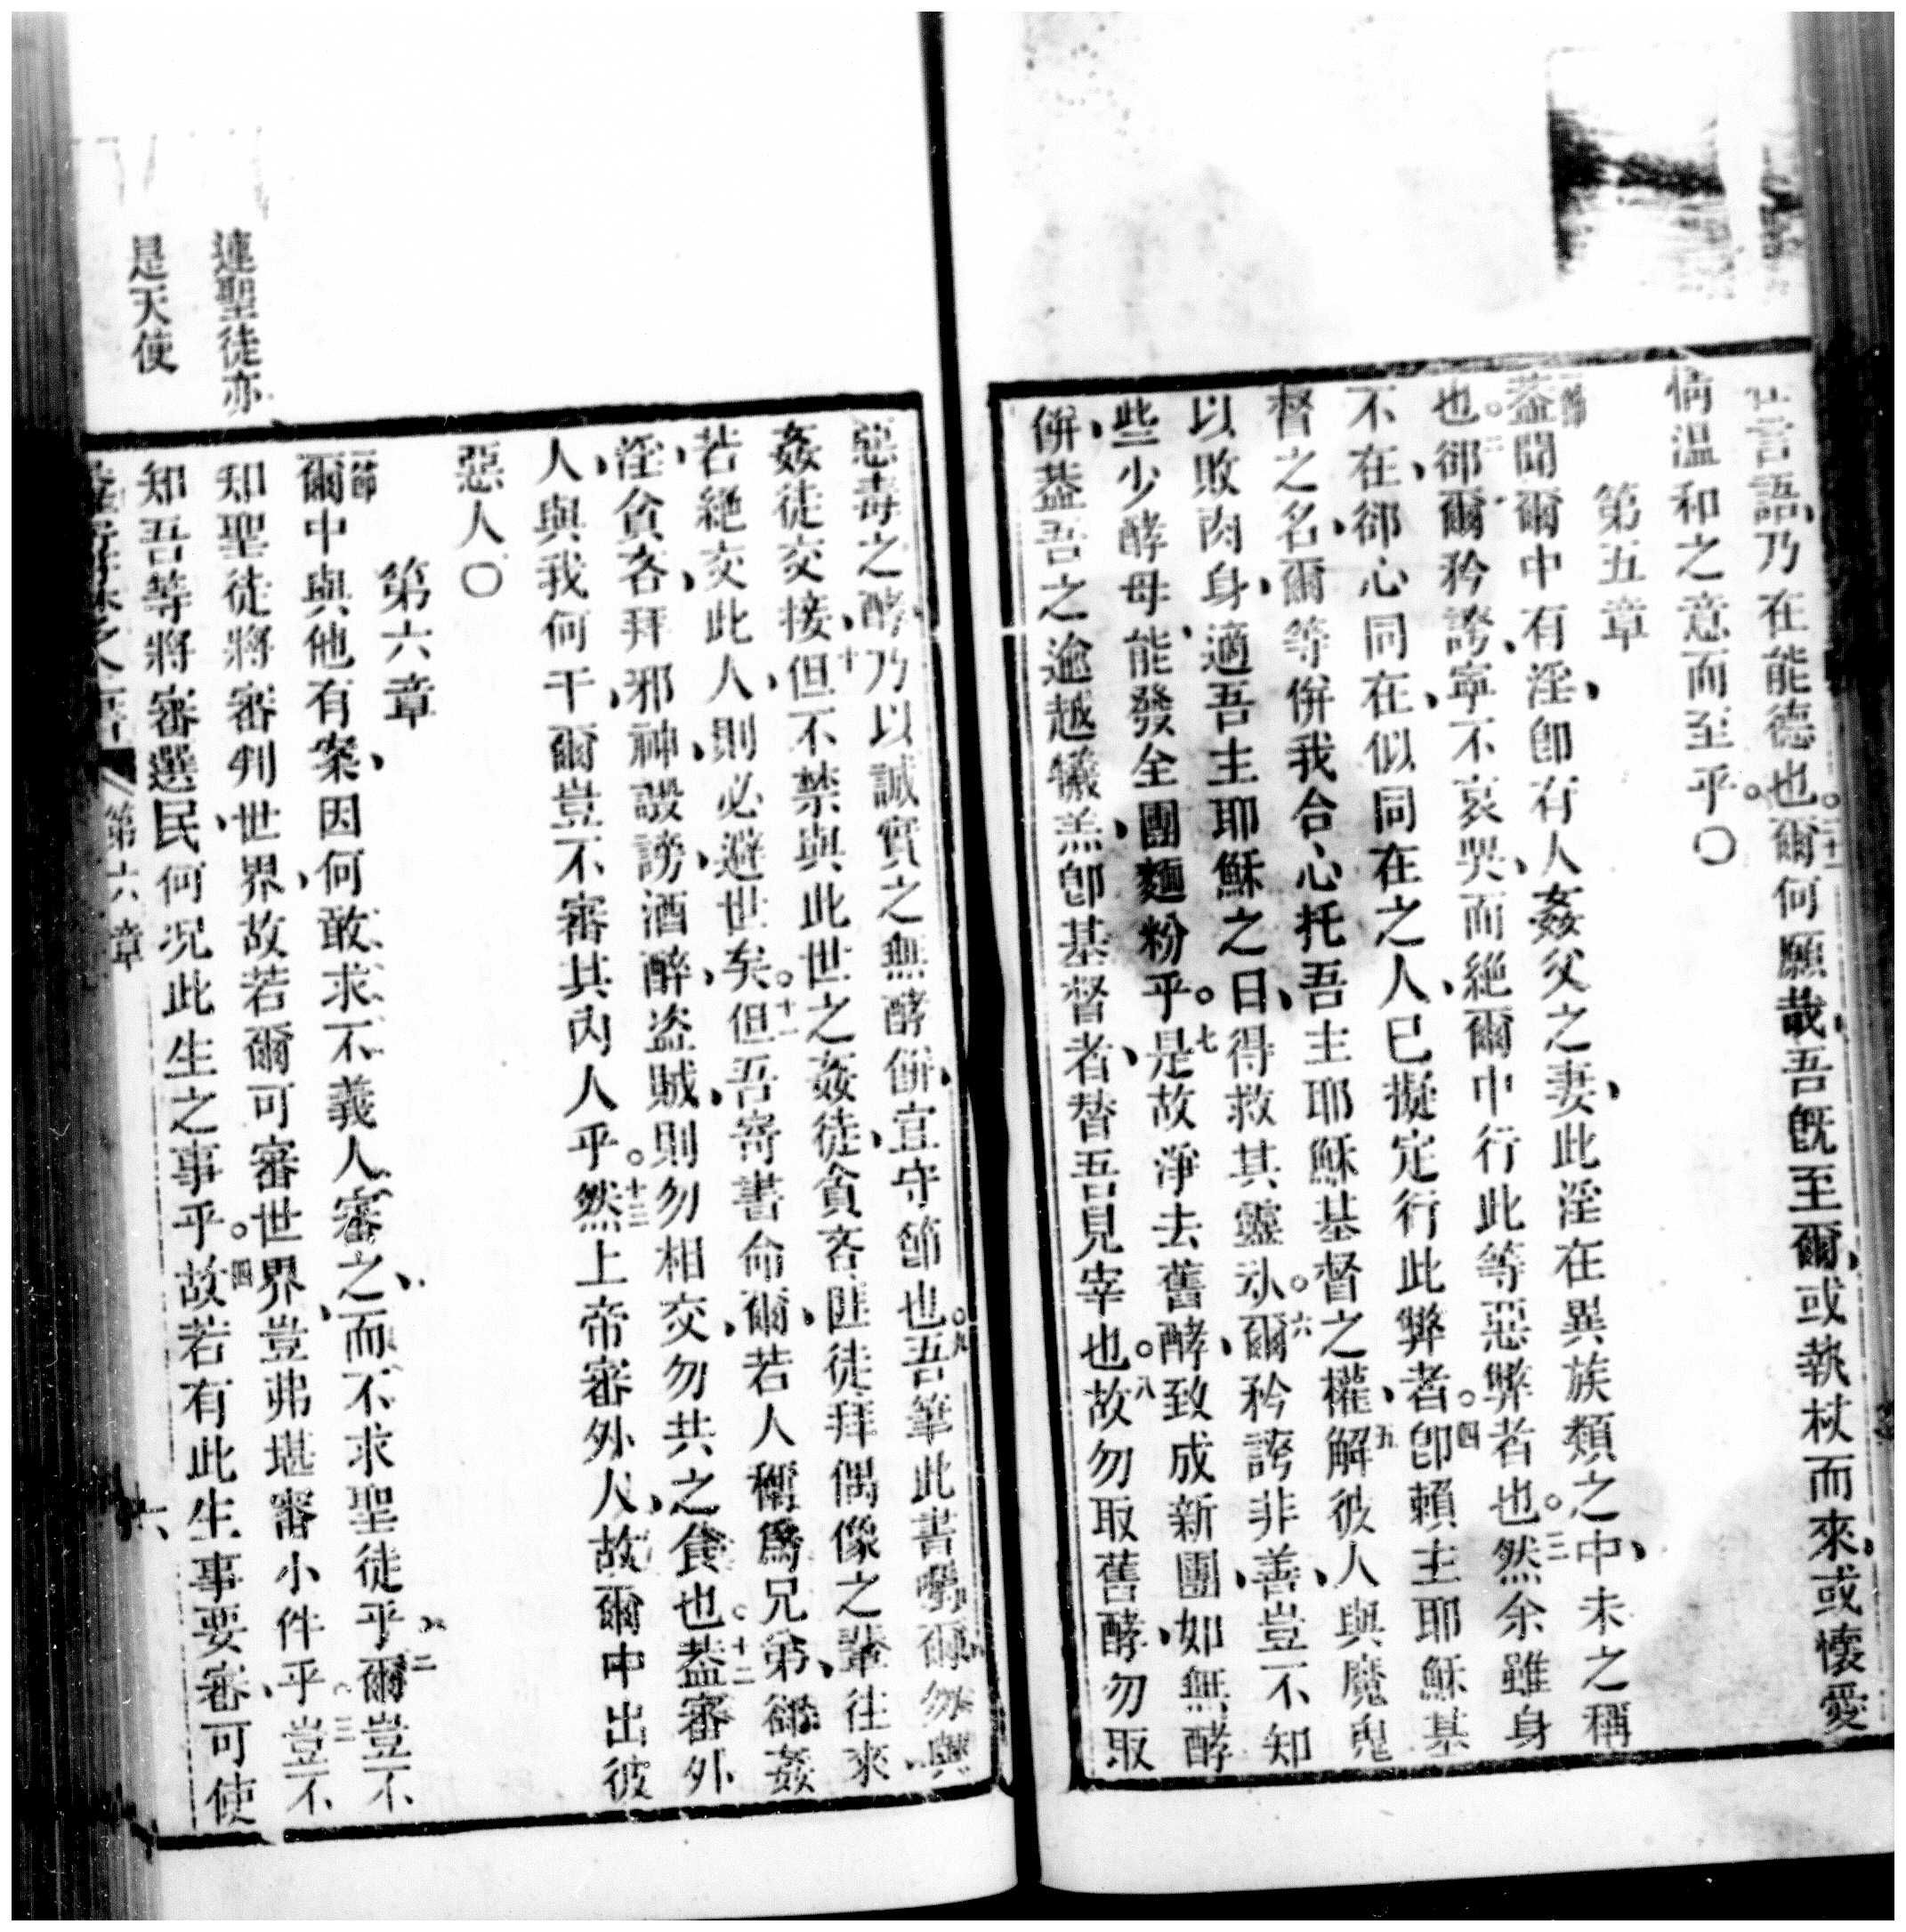 言語、乃在能德也。二十一爾何願哉、吾旣至爾、或執杖而來、或懷愛
情温和之意而至乎。〇
第五章
一節葢聞爾中有淫、卽有人姦父之妻、此淫在異族類之中、未之稱
也。二郤爾矜誇、寧不哀哭、而絕爾中行此等惡弊者也。三然余雖身
不在、郤心同在、似同在之人、已擬定行此弊者。四卽賴主耶穌基
督之名、爾等倂我合心托吾主耶穌基督之權、五解彼人與魔鬼
以敗肉身、適吾主耶穌之日、得救其靈氹。六爾矜誇非善、豈不知
些少酵母、能發全團麵粉乎。七是故淨去舊酵、致成新團、如無酵
餅、葢吾之逾越犧羔、卽基督者、替吾見宰也。八故勿取舊酵、勿取
惡毒之酵、乃以誠實之無酵餅、宜守節也。九吾筆此書嘮爾勿與
姦徒交接、十但不禁與此世之姦徒、貪吝、匪徒、拜偶像之輩往來、
若絕交此人、則必避世矣。十一但吾寄書命爾、若人稱爲兄弟、郤姦
淫、貪吝、拜邪神、毀謗、酒醉、盜賊、則勿相交、勿共之食也。十二葢審外
人、與我何干、爾豈不審其內人乎。十三然上帝審外人、故爾中出彼
惡人〇
第六章
一節爾中與他有案、因何敢求不義人審之、而不求聖徒乎。二爾豈不
知聖徒將審判世界、故若爾可審世界、豈弗堪審小件乎。三豈不
知吾等將審選民、何况此生之事乎。四故若有此生事要審、可使
連聖徒亦
是天使
第六章
六